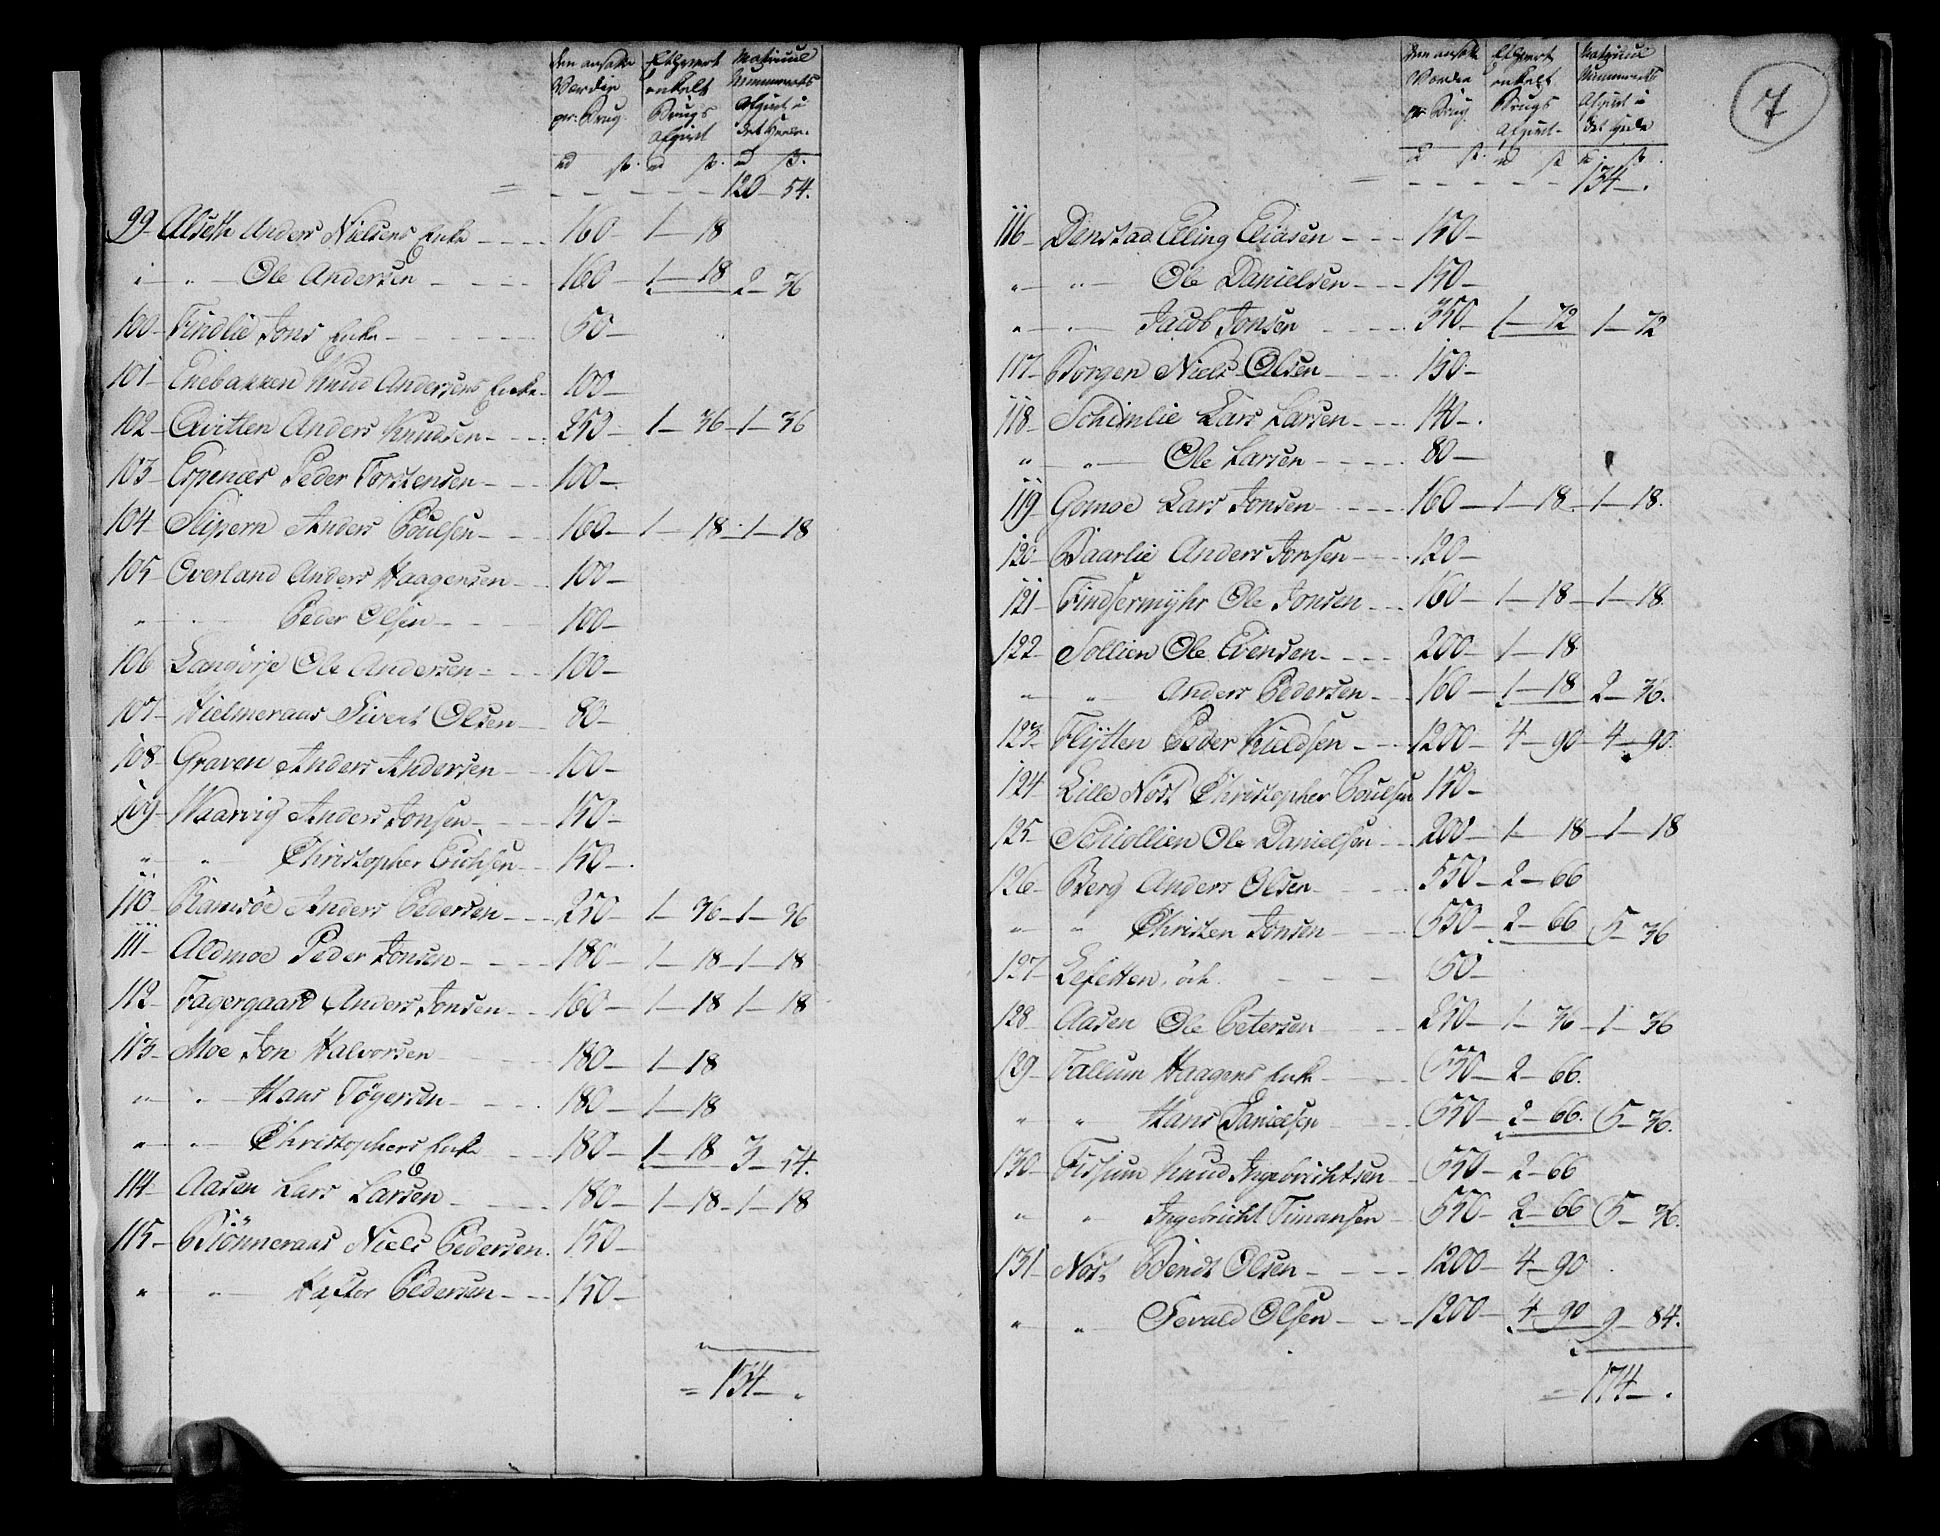 den ansatte Værdie pr. Brug
Ethvert enkelt Brugs Afgivt
Matricul Nummerets Afgivt i det Heele
rd ß. rd ß. rd ß.
= - - - - - 120 - 54.
99 - Alseth Anders Nielsens Enke - - - 160 - 1 - 18
" - " - Ole Andersen - - - 160 - 1 - 18 2 - 36
100 - Findlie Jons Enke - - - 50 -
101 - Enebakken Knud Andersens Enke - 100 -
102 - Qvitlen Anders Knudsen - - - 250 - 1 - 36 - 1 - 36
103 - Espenæs Peder Torstensen - - - 100 -
104 - Slipern Anders Poulsen - - - 160 - 1 - 18 - 1 - 18
105 - Overland Anders Haagensen - - 100 -
" - " - Peder Olsen - - - 100 -
106 Langørje Ole Andersen - - - 100 -
107 - Hielmeraas Sivert Olsen - - 80 -
108 - Graven Anders Andersen - - 100 -
109 - Waarvig Anders Jonsen - - - 150 -
" - " - Christopher Erichsen - - 150 -
110 - Ramsøe Anders Pedersen - - - 250 - 1 - 36 - 1 - 36
111 - Aldmoe Peder Jonsen - - - 180 - 1 - 18 - 1 - 18
112 - Fagergaard Anders Jonsen - - 160 - 1 - 18 1 - 18
113 - Moe Jon Halvorsen - - - 180 - 1 - 18
" - " - Hans Tøgersen - - - 180 - 1 - 18
" - " - Christophers Enke - - 180 - 1 - 18 3 - 54.
114 - Aasen Lars Larsen - - - 180 - 1 - 18 - 1 - 18
115 - Bjönneraas Niels Pedersen. 150 -
" - " - Haftor Pedersen - - - 150 -
= 134 - "
7
den ansatte Værdie pr. Brug.
Ethvert enkelt Brugs Afgivt -
Matricul Nummerets Afgivt i det Heele
rd ß. rd ß rd ß.
= - - - - - 134 - .
116 - Denstad Elling Eliasen - - - 150 -
" - " - Ole Danielsen - - - 150 -
" - " - Jacob Jonsen - - - 350 - 1 - 72 1 - 72
117 - Borgen Niels Olsen - - - 150 -
118 - Schimlie Lars Larsen - - - 140 - .
" - " - Ole Larsen - - - 80 -
119 - Gomoe Lars Jonsen - - - 160 - 1 - 18 - 1 - 18.
120 - Baarlie Anders Jonsen - - - 120 -
121 - Findsermyhr Ole Jonsen - - - 160 - 1 - 18 - 1 - 18.
122 - Sollien Ole Evensen - - - 200 - 1 - 18
" - " - Anders Pedersen - - 160 - 1 - 18 2 - 36.
123 - Flytten Peder Kieldsen - - - 1200 - 4 - 90 - 4 - 90.
124 Lille Nøst Christopher Poulsen 150 -
125 - Schiollien Ole Danielsen - - 200 - 1 - 18 - 1 - 18
126 - Berg Anders Olsen - - - 550 - 2 - 66
" - " Christen Jonsen - - - 550 - 2 - 66 5 - 36
127 - - - - 50 -
128 - Aasen Ole Petersen - - - 250 - 1 - 36 - 1 - 36
129 - Fallum Haagens Enke - - - 550 - 2 - 66.
" - " Hans Danielsen - - - 550 - 2 - 66. 5 - 36.
130 - Fossum Knud Ingebrichtsen - 550 - 2 - 66
" - " Ingebricht Timansen - 550 - 2 - 66 5 - 36.
131 - Nøst Bendt Olsen - - - 1200 - 4 - 90
" - " - Sevald Olsen - - - 1200 - 4 - 90 9 - 84.
= 174 - .